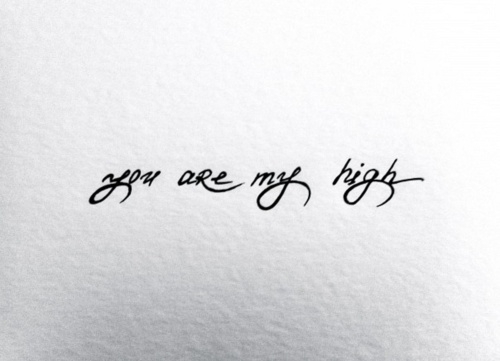 you are my high